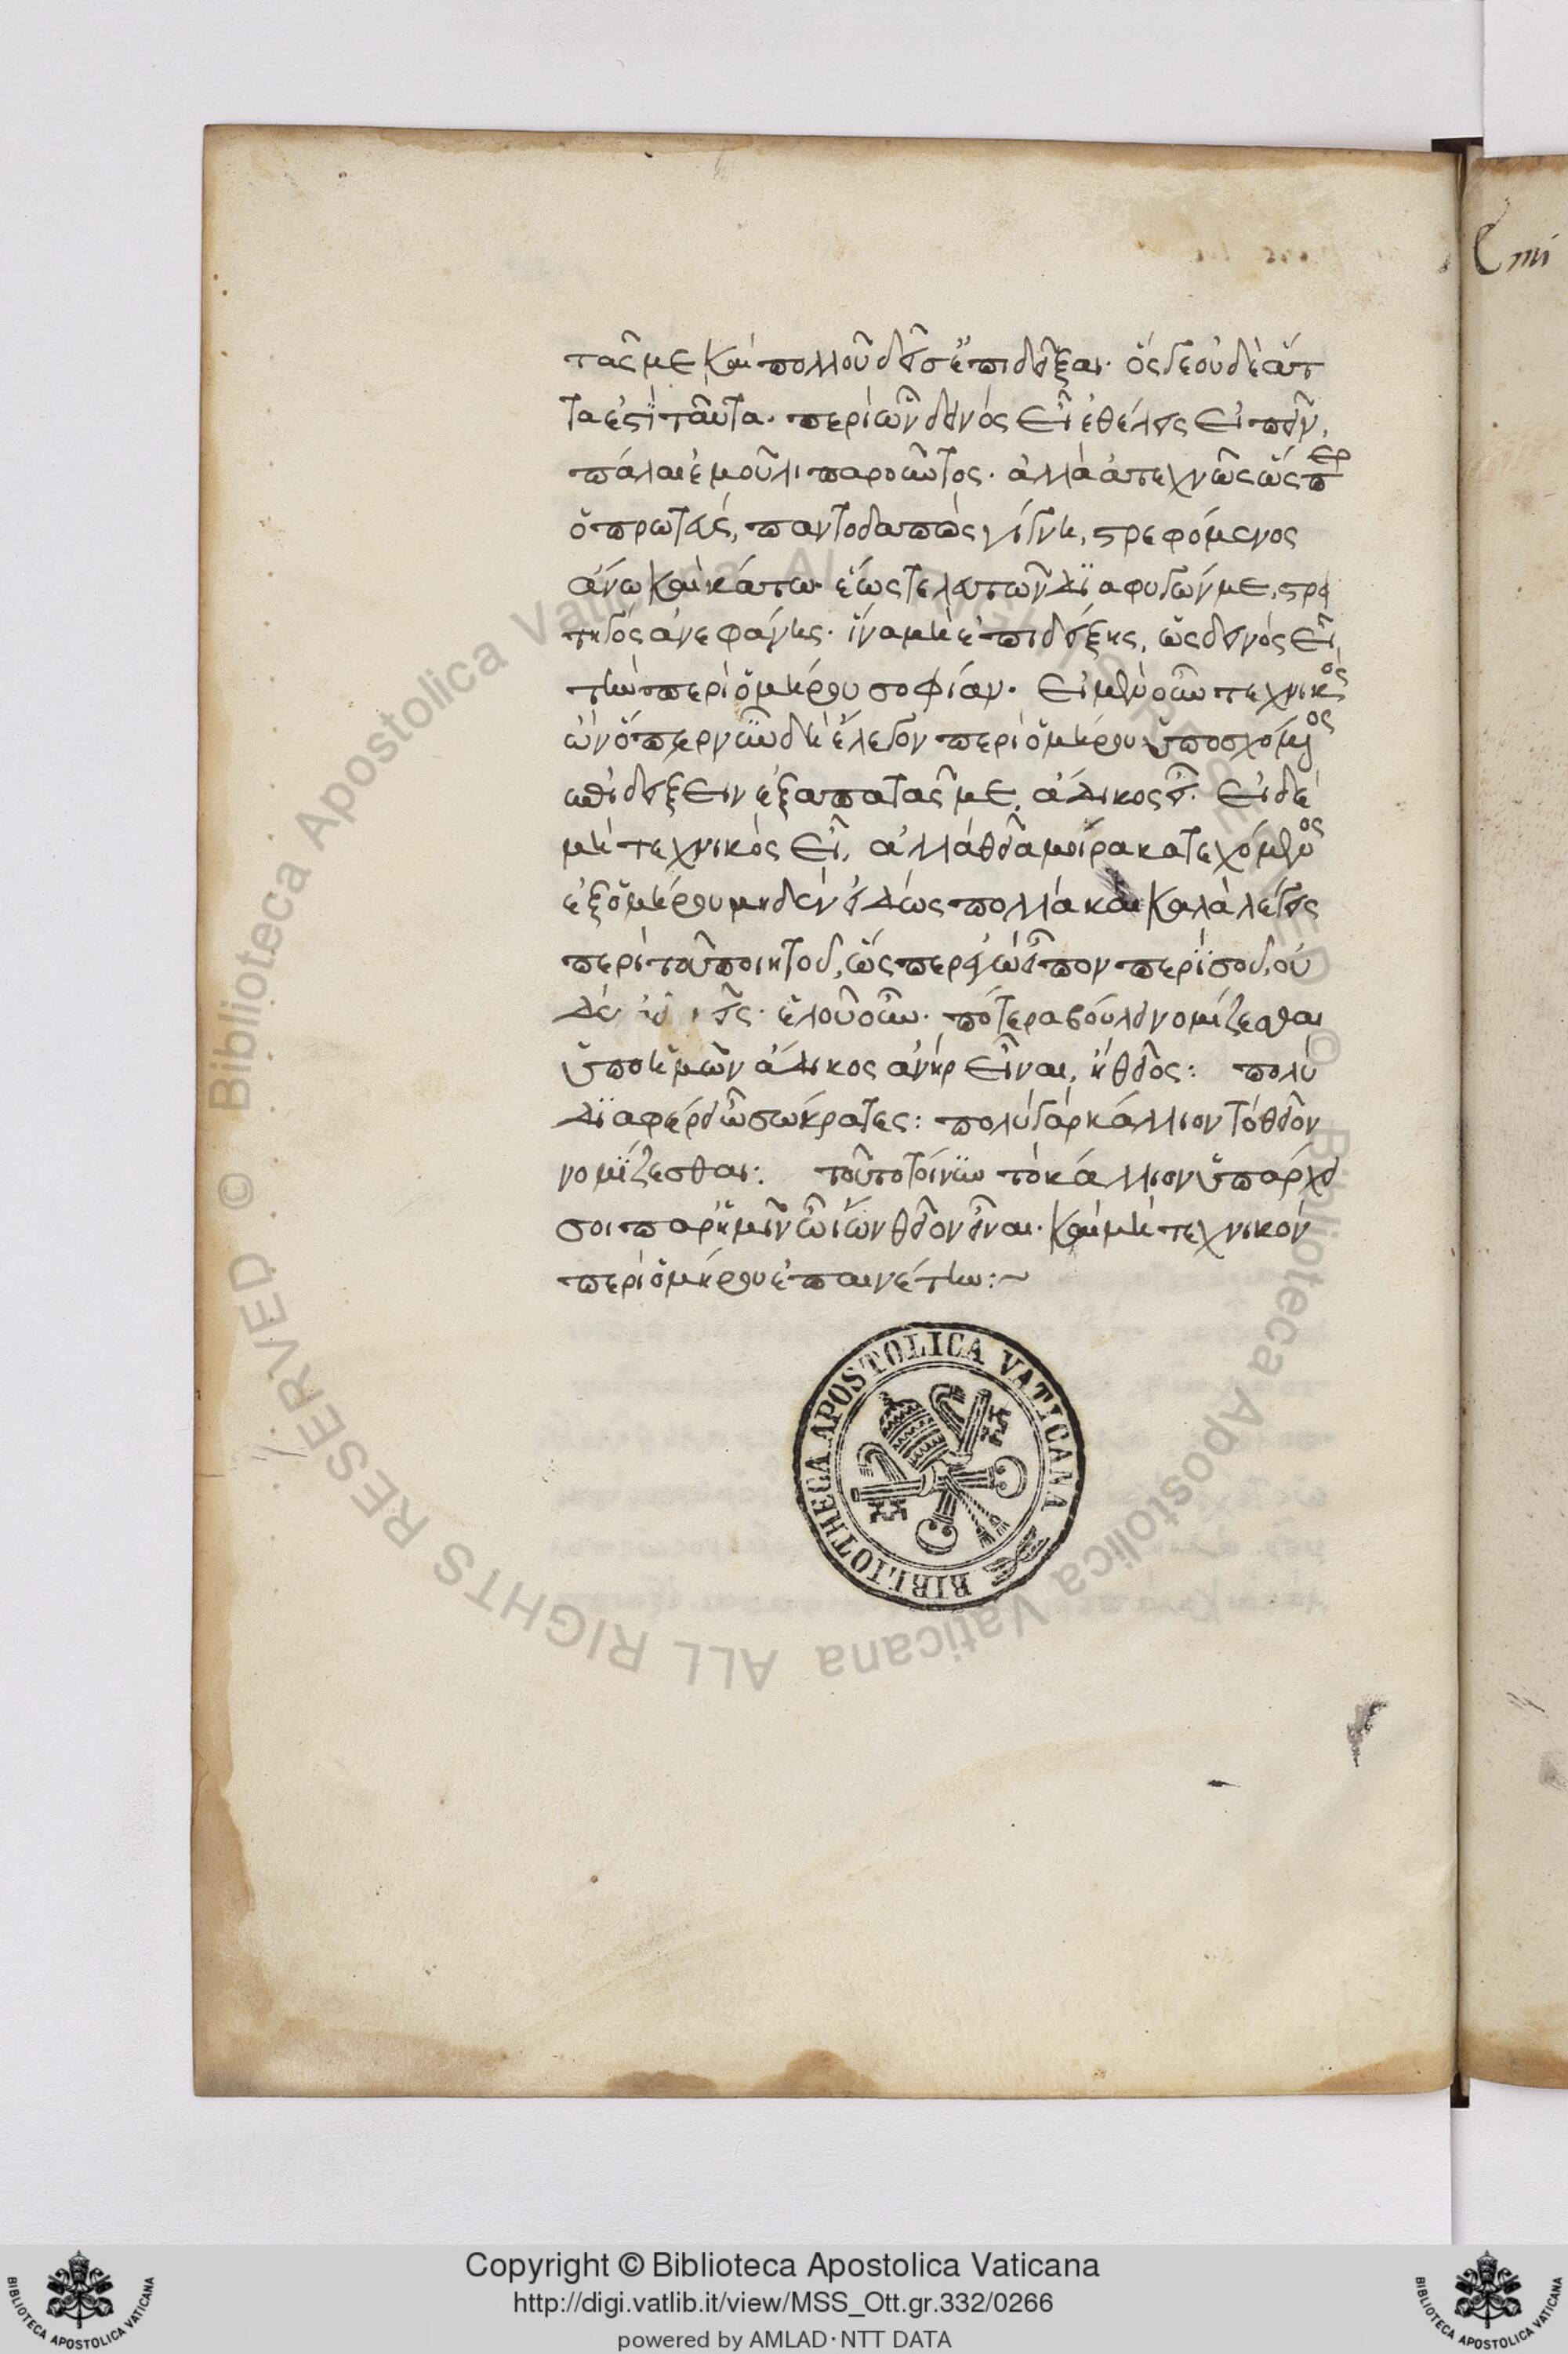 τᾷς με καὶ πολλοῦ δεῖς ἐπιδεῖξαι· ὅς γε οὐδὲ ἅτ
τα ἐστὶ ταῦτα· περὶ ὧν δεινὸς εἶ ἐθέλεις εἰπεῖν,
πάλαι ἐμοῦ λιπαροῦντος· ἀλλὰ ἀτεχνῶς ὥςπερ
ὁ πρωτεὺς, παντοδαπὸς γίγνη, στρεφόμενος
ἄνω καὶ κάτω· ἕως τελευτῶν διαφυγών με, στρα
τηγὸς ἀνεφάνης· ἵνα μὴ ἐπιδείξῃς, ὡς δεινὸς εἶ,
τὴν περὶ ὁμήρου σοφίαν· εἰ μὲν οὖν τεχνικὸς
ὢν ὅπερ νῦν δὴ ἔλεγον περὶ ὁμήρου ὑποσχόμενος
ἐπιδείξειν ἐξαπατᾷς με, ἄδικος εἶ· εἰ δὲ
μὴ τεχνικὸς εἶ, ἀλλὰ θεῖα μοίρα κατεχόμενος
ἐξ ὁμήρου μηδὲν εἰδὼς πολλὰ καὶ καλὰ λέγεις
περὶ τοῦ ποιητοῦ, ὥςπερ ἐγὼ εἶπον περὶ σοῦ, οὐ
δὲν ἀδικεῖς· ἑλοῦ οὖν· πότερα βούλει νομίζεσθαι
ὑπὸ ἡμῶν ἄδικος ἀνὴρ εἶναι, ἢ θεῖος: πολὺ
διαφέρει ὦ σώκρατες: πολὺ γὰρ κάλλιον τὸ θεῖον
νομίζεσθαι: τοῦτο τοίνυν τὸ κάλλιον ὑπάρχει
σοι παρ' ἡμῖν ὦ ἴων θεῖον εἶναι· καὶ μὴ τεχνικὸν
περὶ ὁμήρου ἐπαινέτην:~
BIBLIOTHECA APOSTOLICA VATICANA
© Biblioteca Apostolica Vaticana ALL RIGHTS RESERVED © Biblioteca Apostolica Vaticana ALL RIGHTS RESERVED
Copyright © Biblioteca Apostolica Vaticana
http://digi.vatlib.it/view/MSS_Ott.gr.332/0266
powered by AMLAD·NTT DATA
BIBLIOTECA APOSTOLICA VATICANA
BIBLIOTECA APOSTOLICA VATICANA